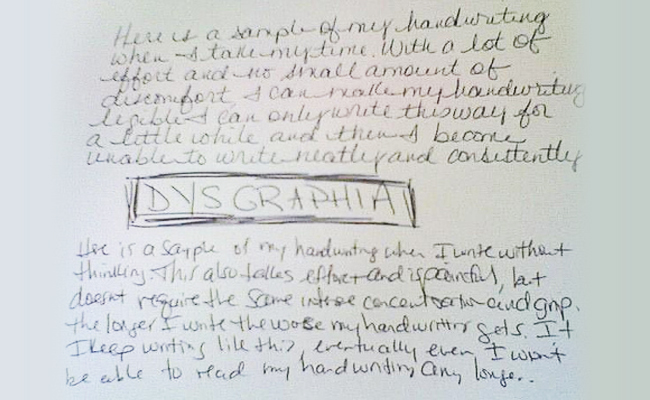 Here is a sample of my handwriting
when I take my time. With a lot of
effort and no small amount of
discomfort, I can make my handwriting
legible. I can only write this way for
a little while, and then I become
unable to write neatly and consistently
DYSGRAPHIA
Here is a sample of my handwriting when I write without
thinking. This also takes effort and is painful, but
doesn't require the same intense concentration and grip.
the longer I write the worse my handwriting gets. If
I keep writing like this, eventually even I won't
be able to read my handwriting any longer.